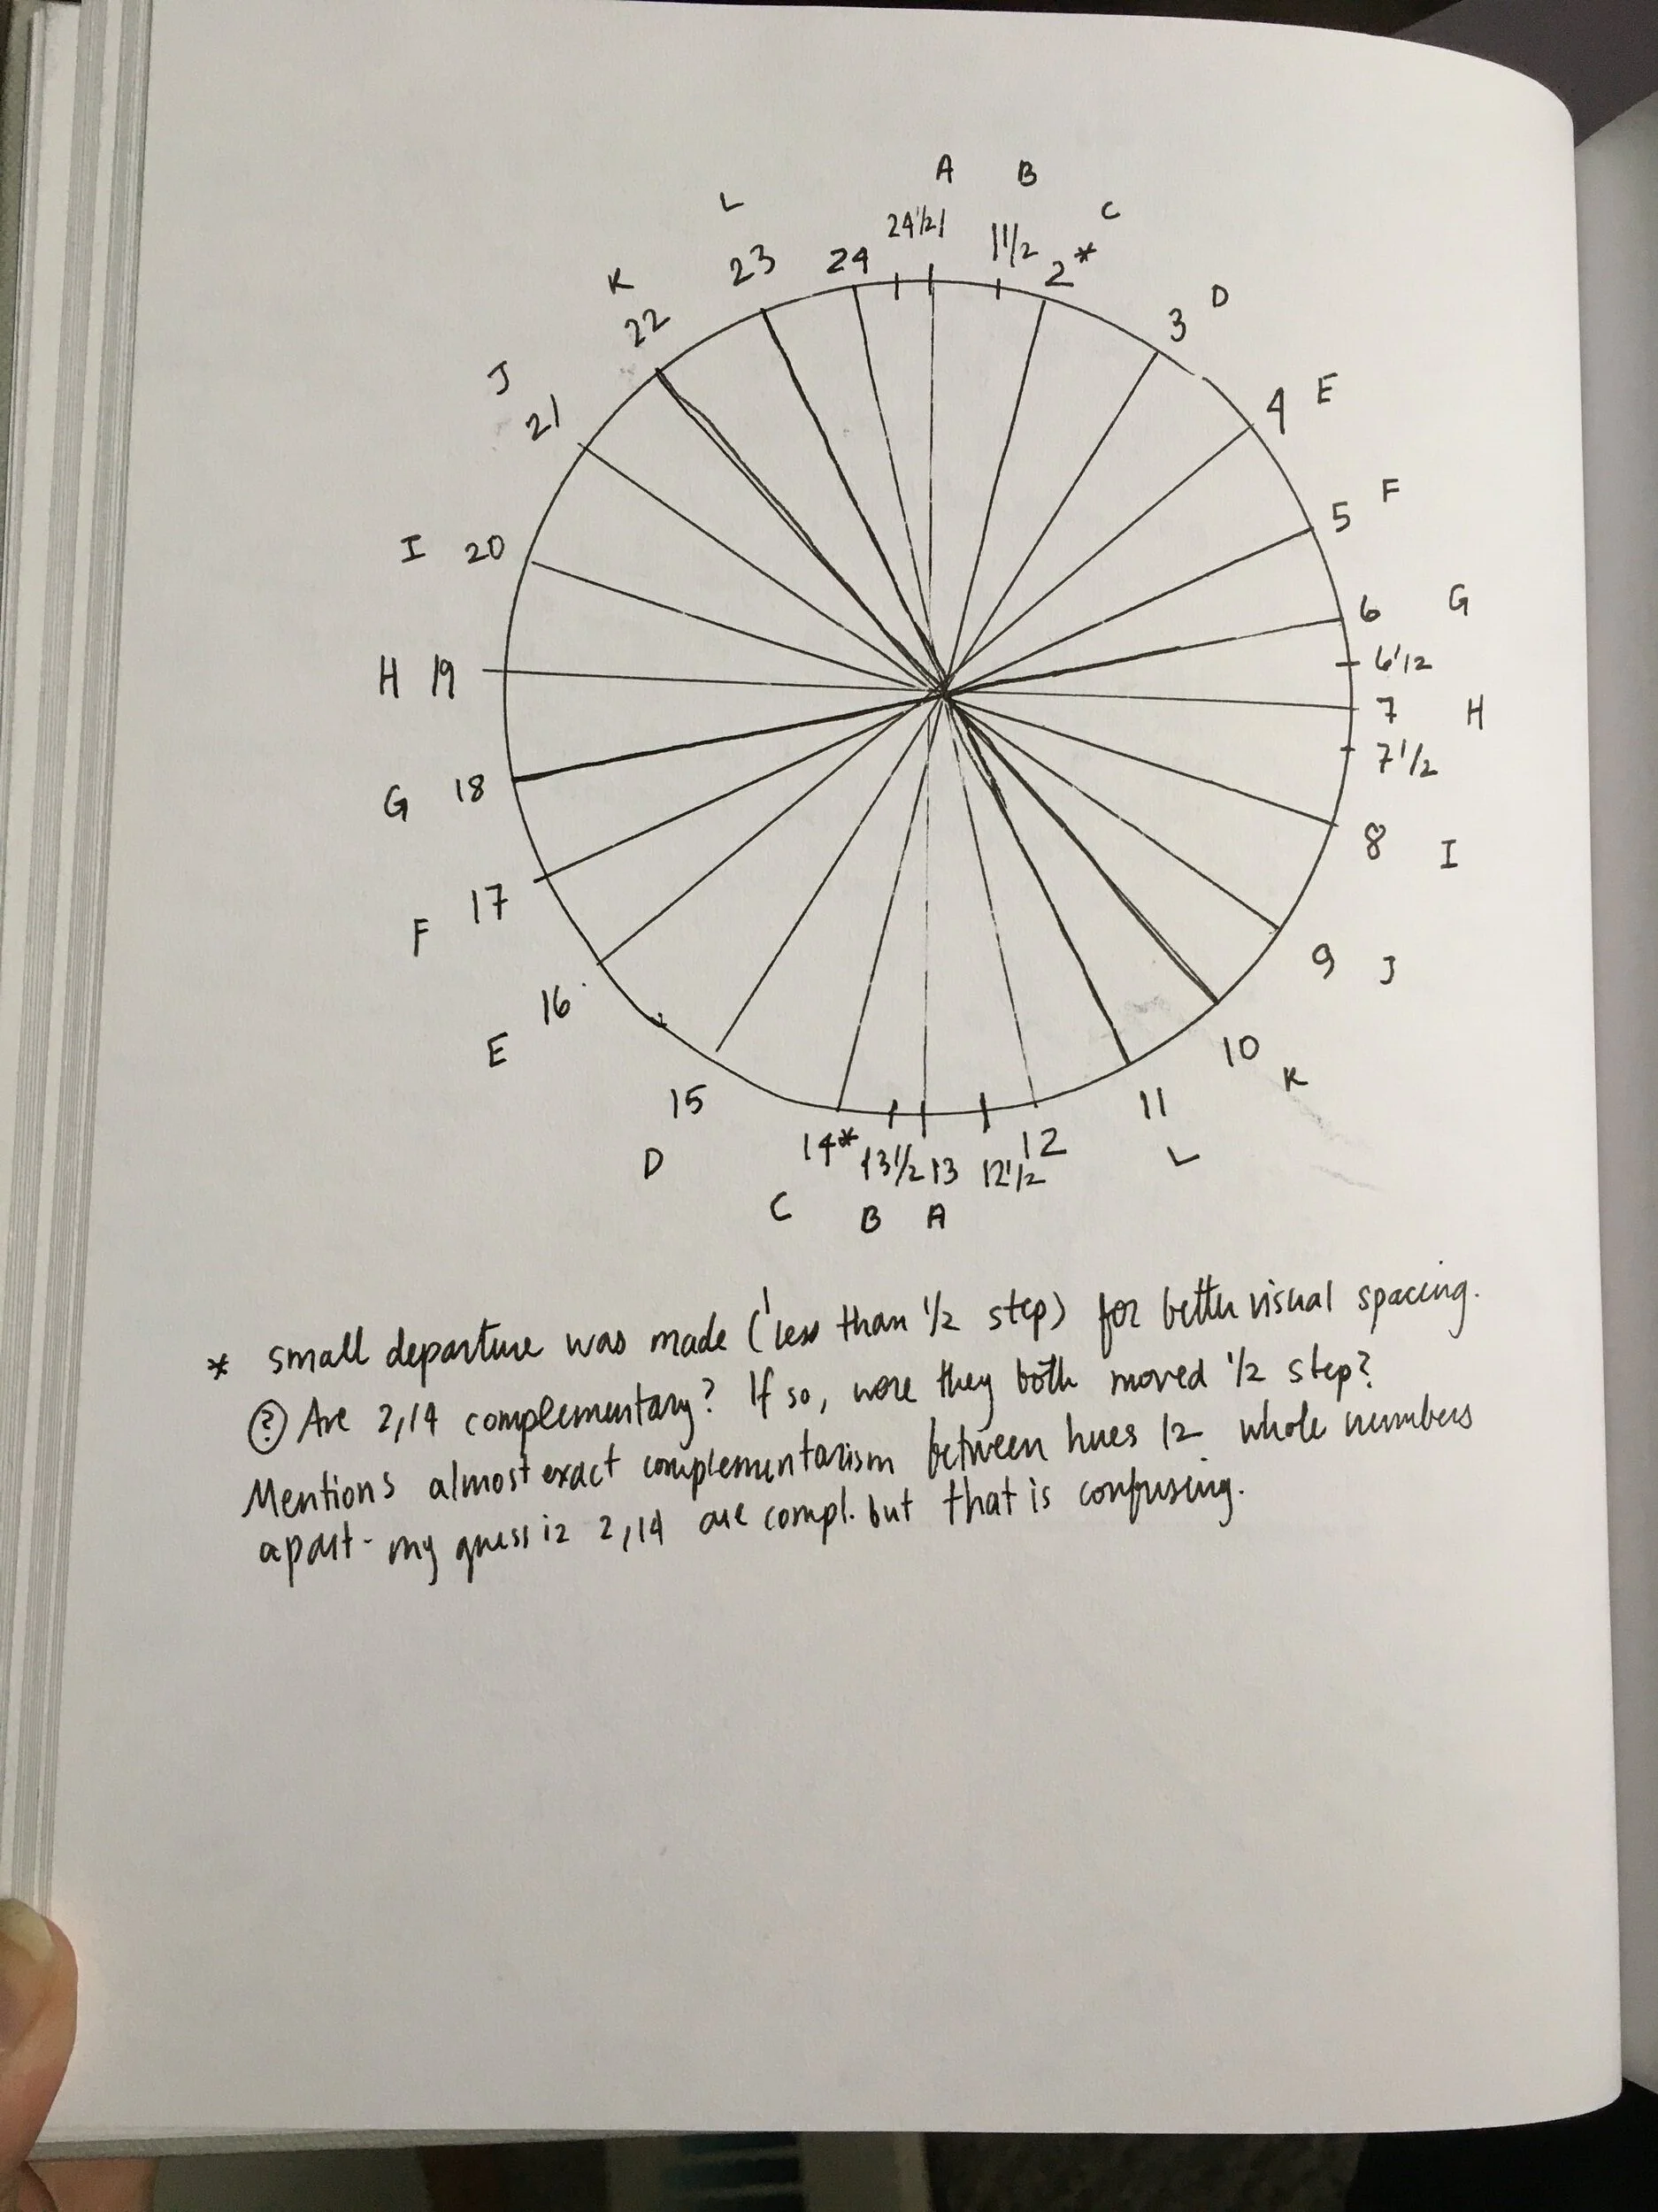 A B
L C
24½ 1 1½
23 24 2*
K D
22 3
J E
21 4
F
5
I 20
6 G
6½
H 19
7 H
7½
G 18
8 I
17
F
9 J
16
E
10
K
15 11
14* 13½ 13 12½ 12
D L
C B A
* small departure was made (less than ½ step) for better visual spacing.
? Are 2,14 complementary? If so, were they both moved ½ step?
Mentions almost exact complementarism between hues 12 whole numbers
apart - my guess is 2,14 are compl. but that is confusing.